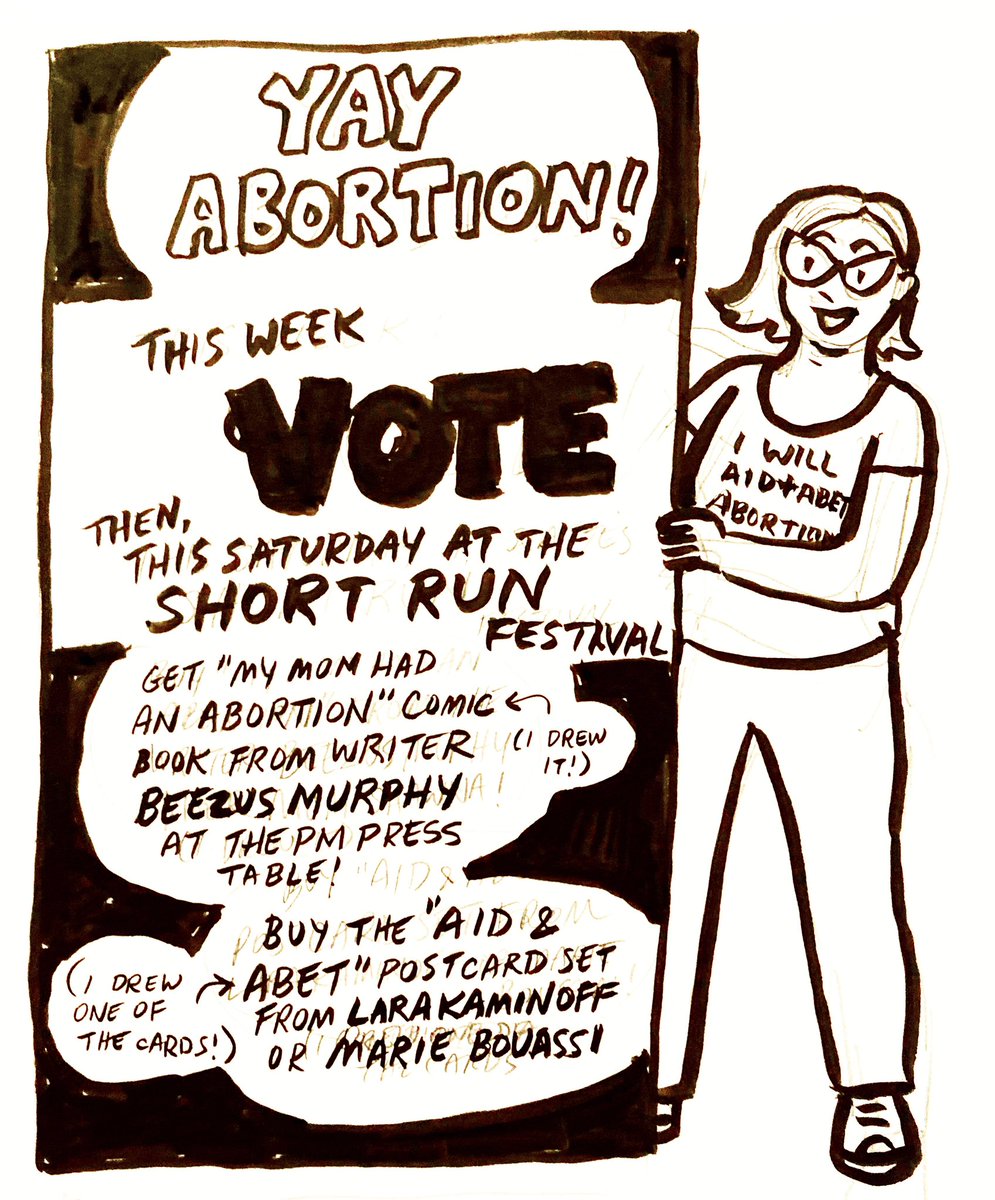 YAY
ABORTION!
THIS WEEK
VOTE
THEN,
THIS SATURDAY AT THE
SHORT RUN
FESTIVAL
GET "MY MOM HAD
AN ABORTION" COMIC
BOOK FROM WRITER
BEEZUS MURPHY
AT THE PM PRESS
TABLE!
(I DREW
IT!)
BUY THE "AID &
ABET" POSTCARD SET
FROM LARA KAMINOFF
OR MARIE BOUASSI
(I DREW
ONE OF
THE CARDS!)
I WILL
AID + ABET
ABORTION